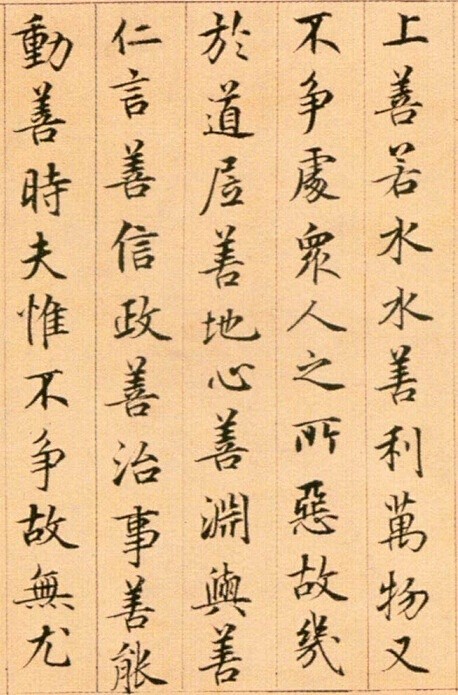 上善若水水善利萬物又
不争處衆人之所惡故幾
於道居善地心善淵與善
仁言善信政善治事善能
動善時夫惟不争故無尤